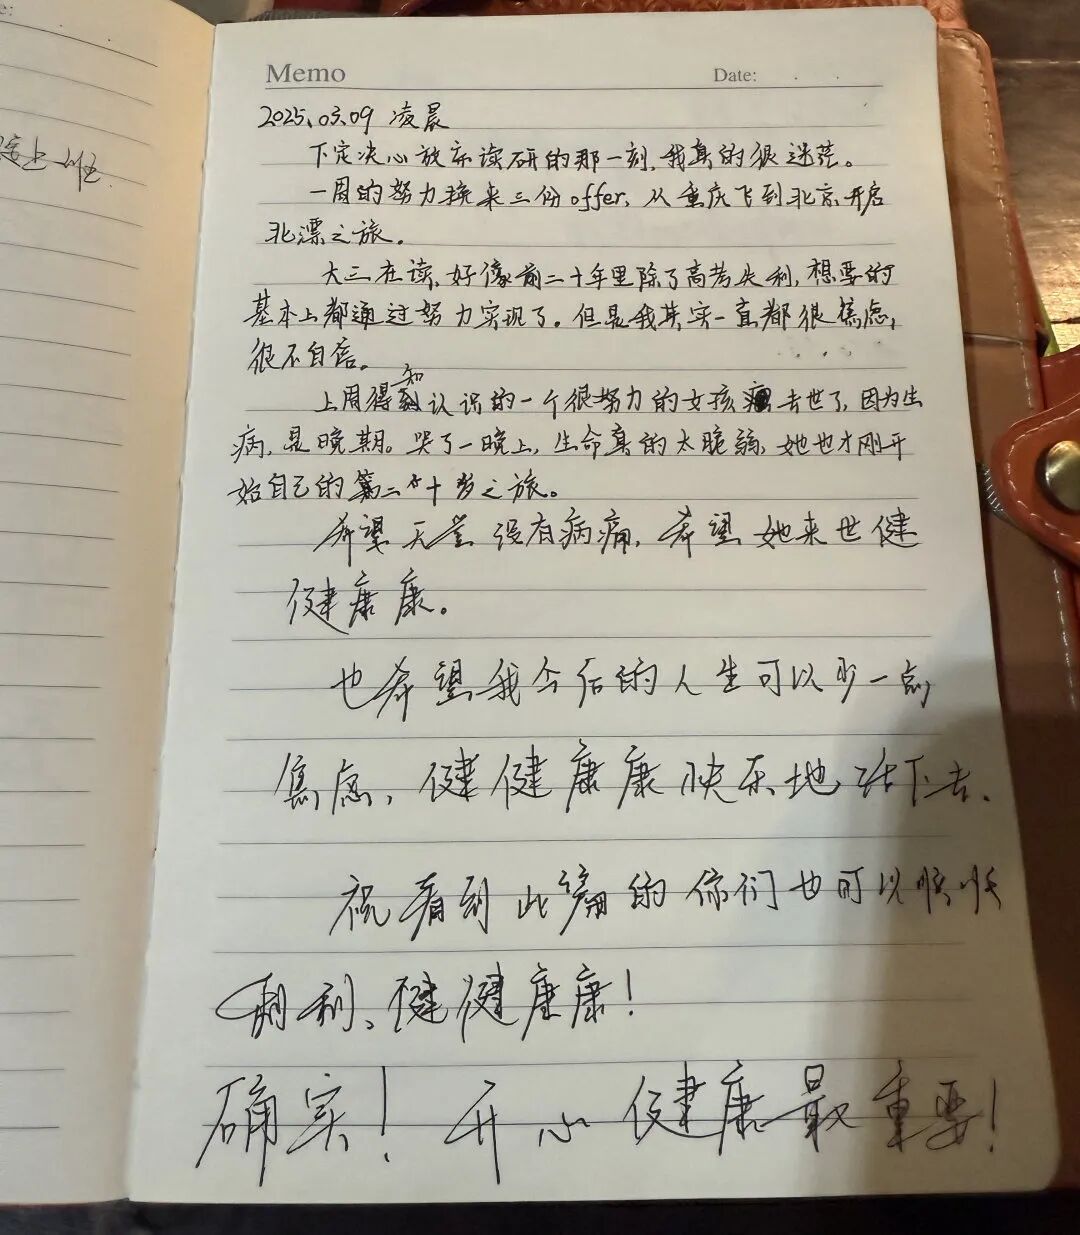 Memo
Date:
2025.03.09 凌晨
下定决心放弃读研的那一刻,我真的很迷茫。
一周的努力换来三份offer,从重庆飞到北京开启
北漂之旅。
大三在读,好像前二十年里除了高考失利,想要的
基本上都通过努力实现了。但是我其实一直都很焦虑,
很不自信。
上周得知认识的一个很努力的女孩去世了,因为生
病,是晚期。哭了一晚上,生命真的太脆弱,她也才刚开
始自己的第二个十岁之旅。
希望天堂没有病痛,希望她来世健
健康康。
也希望我今后的人生可以少一点
焦虑,健健康康快乐地活下去、
祝看到此篇的你们也可以顺顺
利利、健健康康!
确实!开心健康最重要!
上班